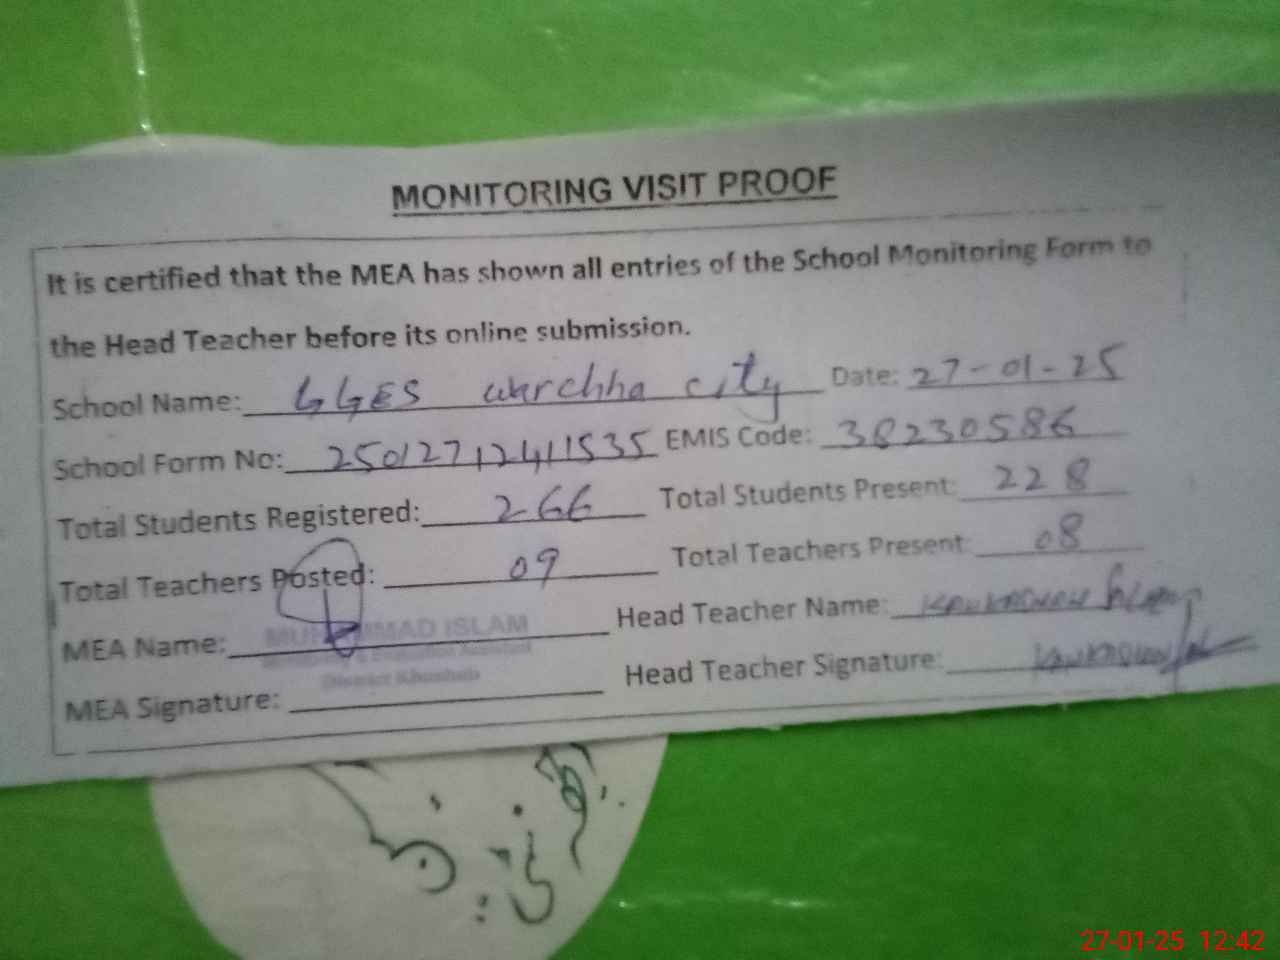 MONITORING VISIT PROOF
It is certified that the MEA has shown all entries of the School Monitoring Form to
the Head Teacher before its online submission.
School Name: GGES warchha city Date: 27-01-25
School Form No: 25012712411535 EMIS Code: 38230586
Total Students Registered: 266 Total Students Present: 228
Total Teachers Posted: 09 Total Teachers Present: 08
MEA Name: MUHAMMAD ISLAM Head Teacher Name:
District Khushab
MEA Signature: Head Teacher Signature:
27-01-25 12:42